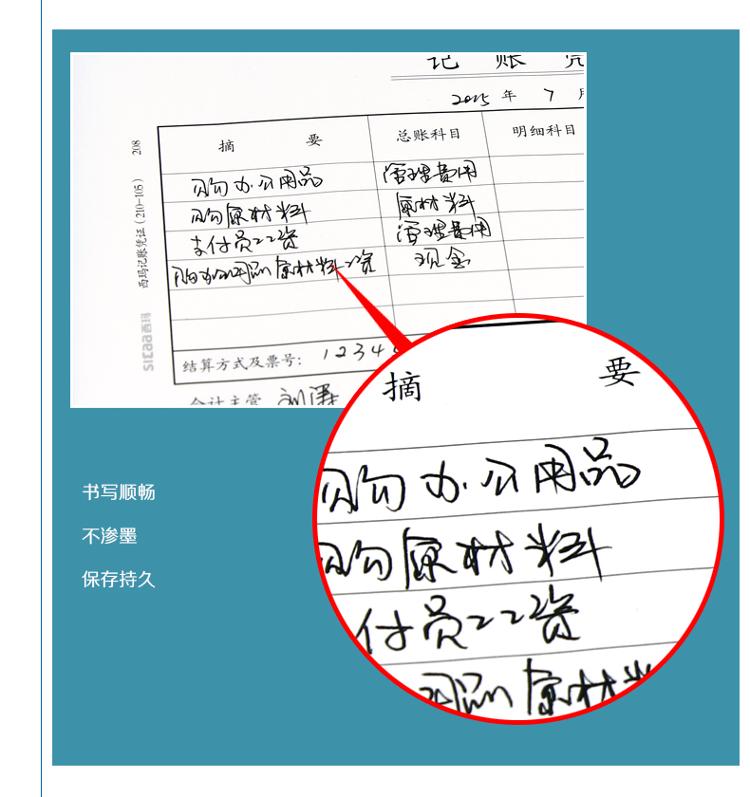 记 账 凭
2015 年 7 月
摘 要 总账科目 明细科目
购办公用品 管理费用
购原材料 原材料
支付员工工资 管理费用
购办公用品原材料工资 现金
结算方式及票号: 1 2 3 4
会计主管
208
西玛记账凭证(210-105)
SIMAA西玛
摘 要
购办公用品
购原材料
付员工工资
用品 原材料
书写顺畅
不渗墨
保存持久